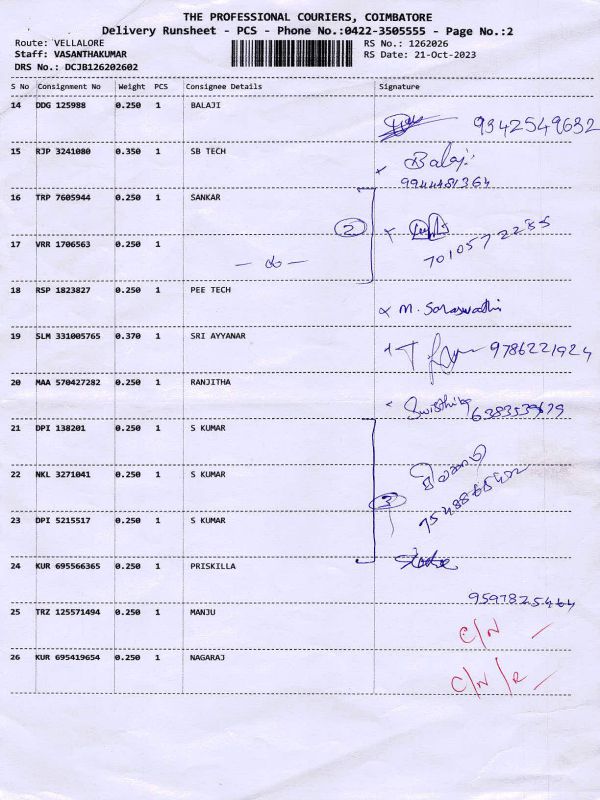 THE PROFESSIONAL COURIERS, COIMBATORE
Delivery Runsheet - PCS - Phone No.:0422-3505555 - Page No.:2
Route: VELLALORE RS No.: 1262026
Staff: VASANTHAKUMAR RS Date: 21-Oct-2023
DRS No.: DCJB126202602
S No Consignment No Weight PCS Consignee Details Signature
14 DDG 125988 0.250 1 BALAJI 9342549632
15 RJP 3241080 0.350 1 SB TECH Balaji
9944481364
16 TRP 7605944 0.250 1 SANKAR
2
7010572255
17 VRR 1706563 0.250 1
18 RSP 1823827 0.250 1 PEE TECH M. Saraswathi
19 SLM 331005765 0.370 1 SRI AYYANAR 9786221924
20 MAA 570427282 0.250 1 RANJITHA 6383539679
21 DPI 138201 0.250 1 S KUMAR
22 NKL 3271041 0.250 1 S KUMAR
3
23 DPI 5215517 0.250 1 S KUMAR
24 KUR 695566365 0.250 1 PRISKILLA
9597825464
25 TRZ 125571494 0.250 1 MANJU C/N
26 KUR 695419654 0.250 1 NAGARAJ C/N/R